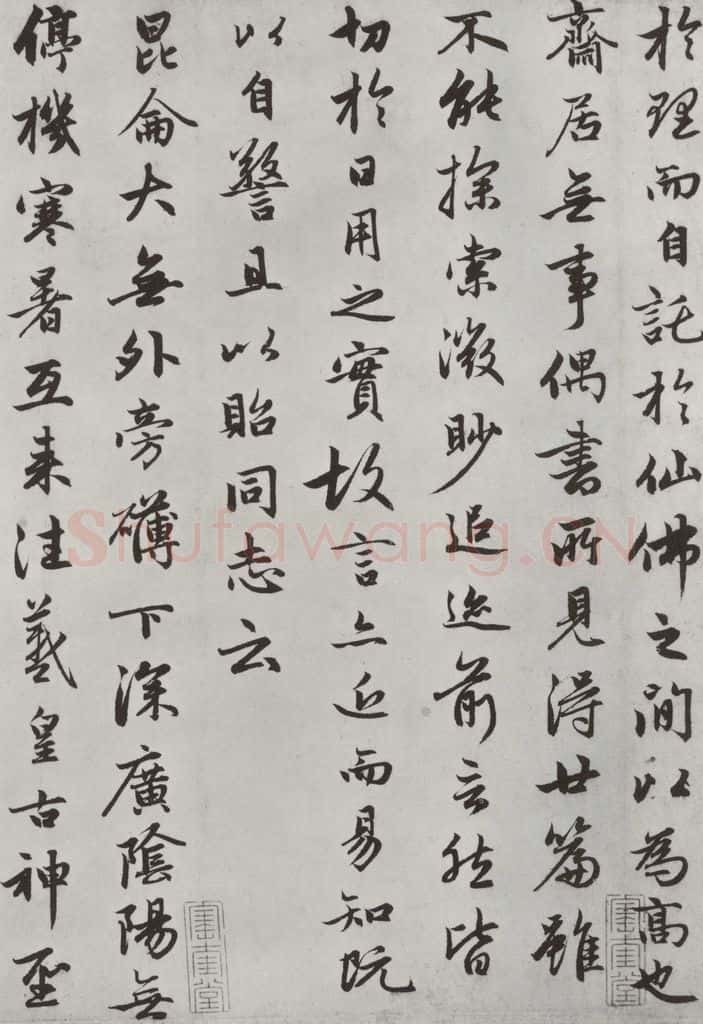 於理而自託於仙佛之間以為高也
齋居無事偶書所見得廿篇雖
不能探索微眇追迹前言然皆
切於日用之實故言亦近而易知既
以自警且以貽同志云
昆侖大無外旁礴下深廣陰陽無
停機寒暑互来往羲皇古神聖
Shufawang.CN